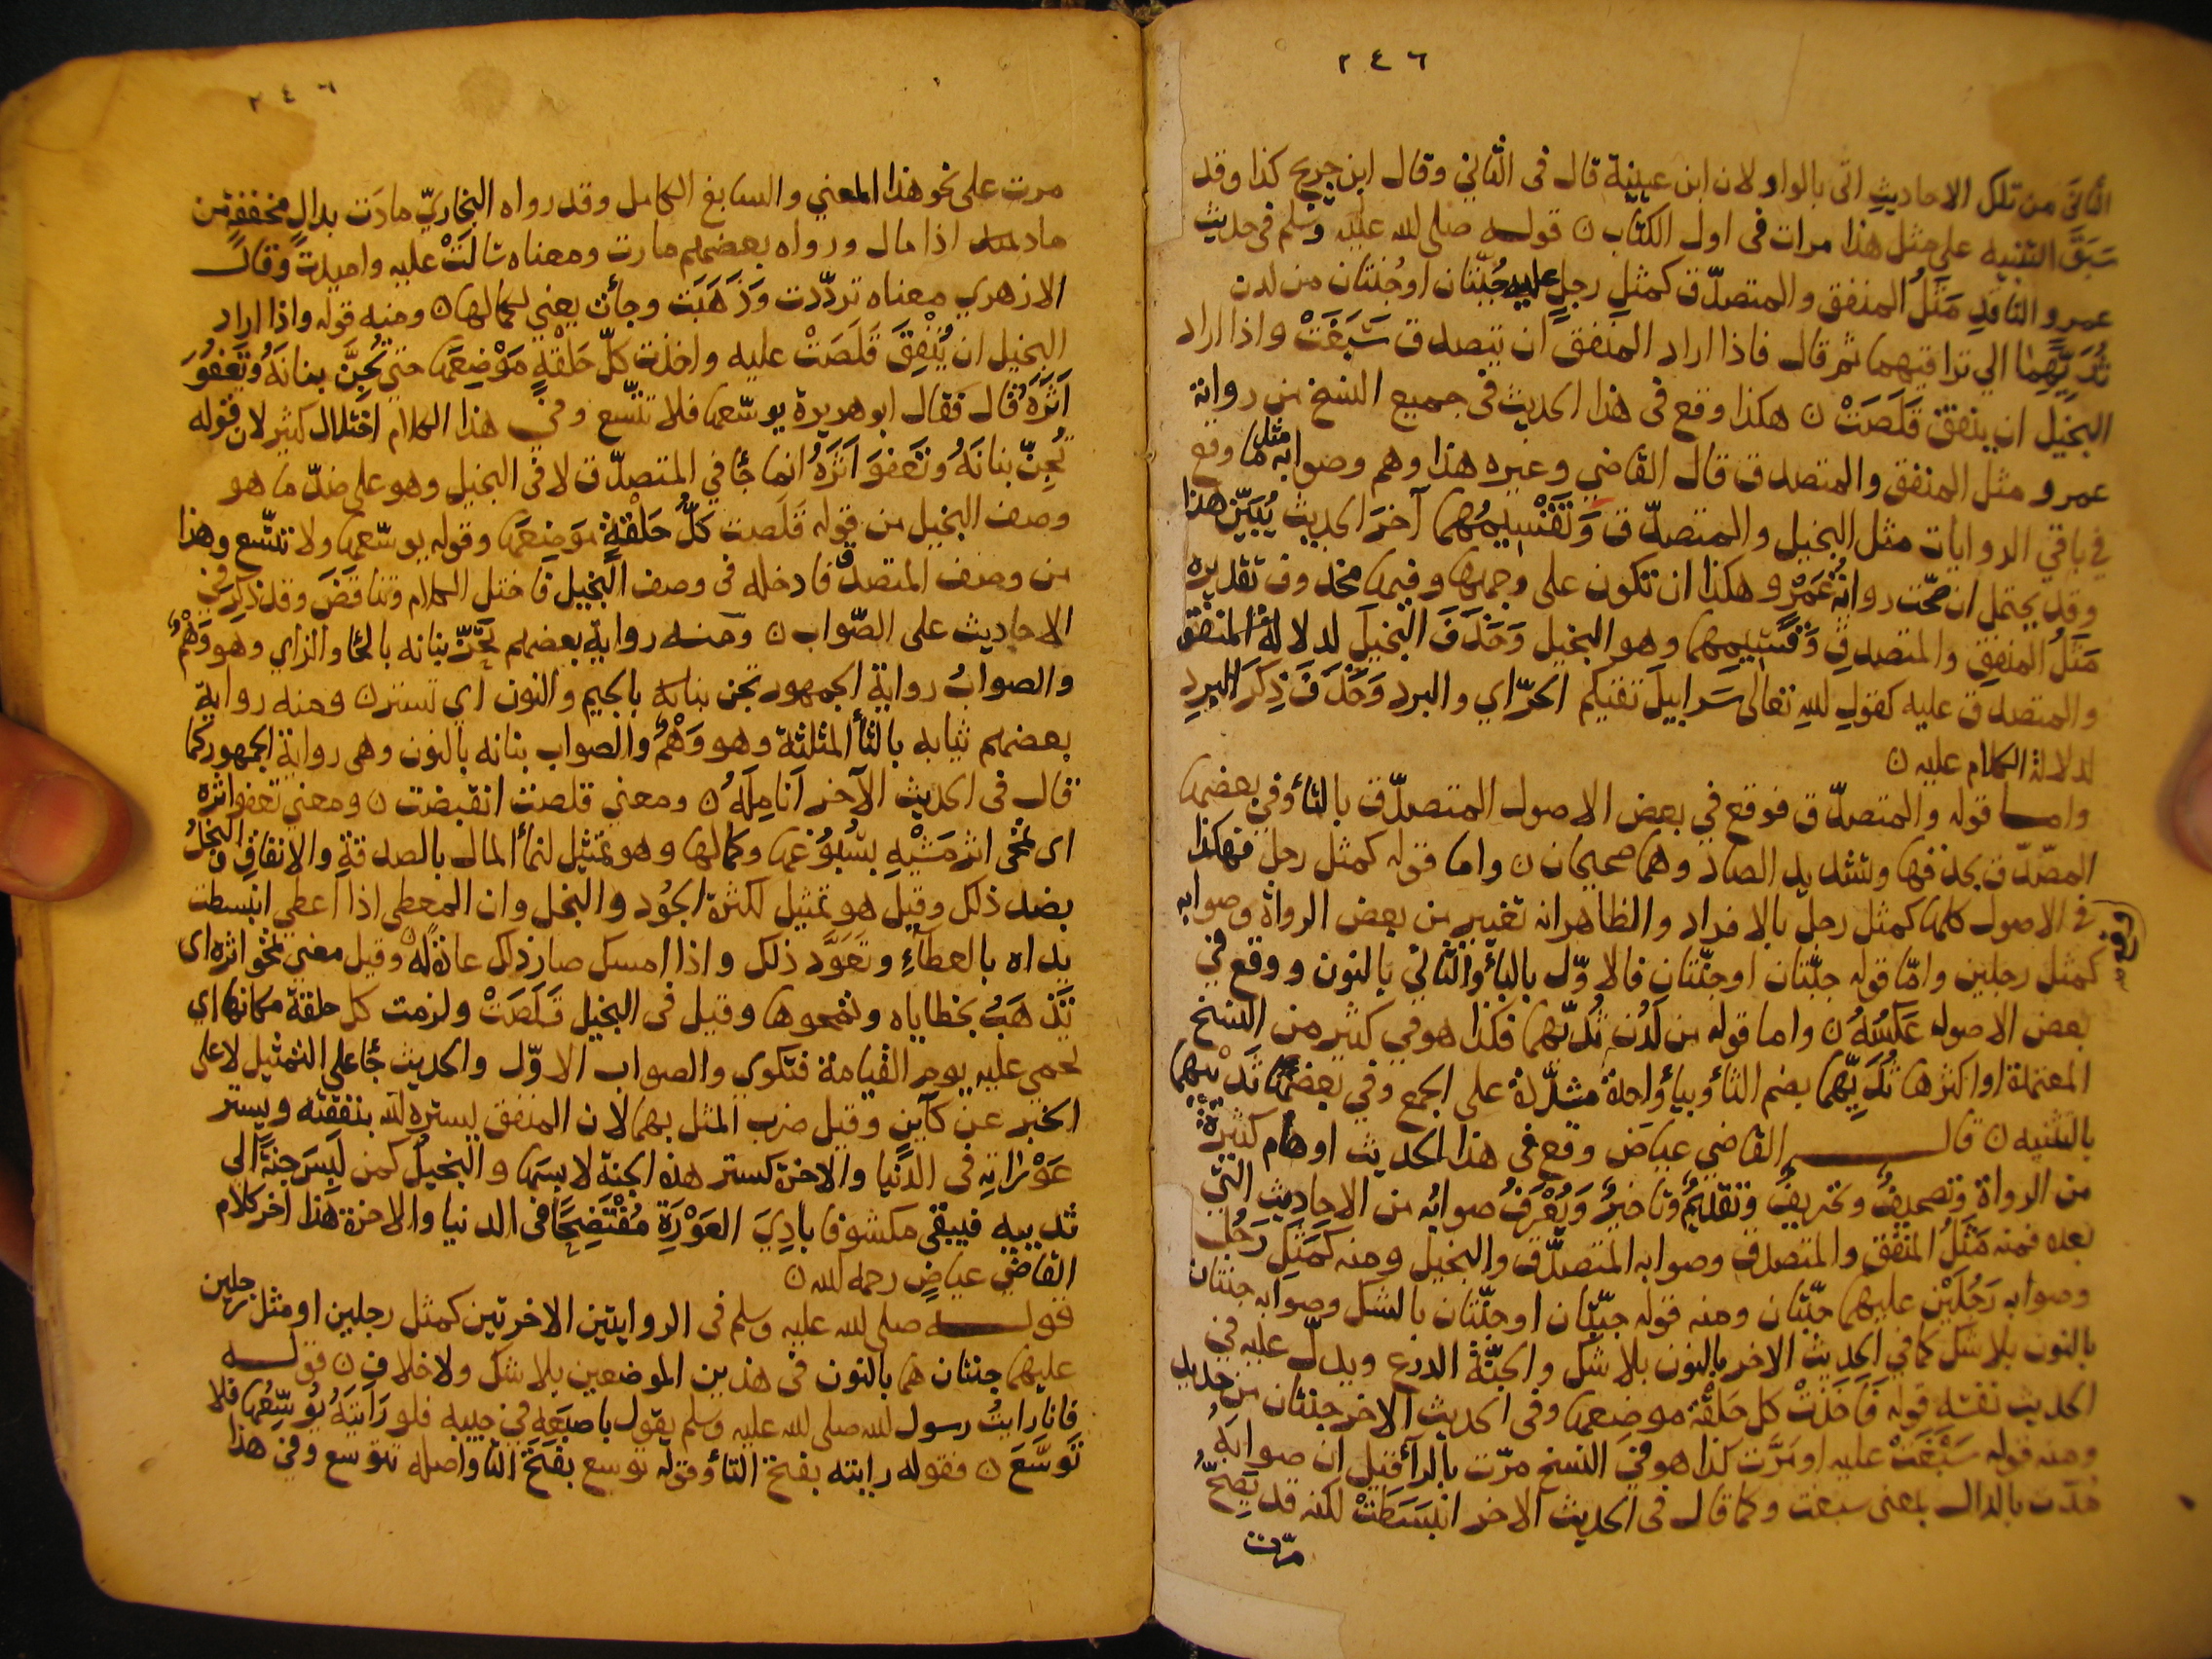 ٢٤٦
الثاني من تلك الاحاديثِ اتى بالواو لان ابن عيينة قال فى الثاني وقال ابن جريج كذا وقد
سَبَقَ التنبيه على مثل هذا مرات فى اول الكتاب ن قوله صلى الله عليه وسلم فى حديث
عمرو الناقدِ مَثَلُ المنفق والمتصدّق كمثلِ رجلٍ عليه جُبّتان اوجُنتان من لدن
ثُدِيِّهِمَا الي تراقيهما ثم قال فاذا اراد المنفق ان يتصدق سَبَغَتْ واذا اراد
البخيل ان ينفق قَلَصَتْ ن هكذا وقع فى هذا الحديث فى جميع النسخ من رواية
عمرو مثل المنفق والمتصدق قال القاضي وغيره هذا وهم وصوابه مثل ما وقع
في باقي الروايات مثل البخيل والمتصدّق وَتَقْسِيمُهما آخرَ الحديث يُبَيّن هذا
وقد يحتمل ان صحّت روايةُ عَمْرٍو هكذا ان تكون على وجهها وفيها محذوف تقديره
مَثَلُ المنفِقِ والمتصدقِ وَقَسِيمِهما وهو البخيل وَحَذَفَ البخيلَ لدلالةُ المنفق
والمتصدق عليه كقولِ اللهِ تعالى سَرَابِيلَ تقيكم الحرّ اي والبرد وَحَذَفَ ذِكرَ البردِ
لدلالة الكلام عليه ن
واما قوله والمتصدّق فوقع في بعض الاصول المتصدّق بالتأ وفي بعضها
المصّدّق بحذفها وتشديد الصاد وهما صحيحان ن واما قوله كمثل رجل فهكذا وقع
في الاصول كلها كمثل رجل بالافراد والظاهرانه تغيير من بعض الرواة وصوابه
كمثل رجلين وامّا قوله جبّتان اوجنّتان فالاوّل بالبأ والثاني بالنون ووقع في
بعض الاصول عَكسُهُ ن واما قوله من لَدُن ثُدِيّهما فكذا هوفي كثير من النسخ
المعتمدة اواكثرها ثُدِيِّهما بضم الثأ وبيأ واحدة مشدّدة على الجمع وفي بعضها ثَدْيَيْهما
بالتثنيه ن قال القاضي عياض وقع فى هذا الحديث اوهام كثيرةٌ
من الرواة وتصحيفٌ وتحريفٌ وتقديمٌ وتاخيرٌ وَيُعْرَفُ صوابُه من الاحاديث التي
بعده فمنه مَثَلُ المنفق والمتصدق وصوابه المتصدّق والبخيل ومنه كَمَثَلِ رَجُلٍ
وصوابه رَجُلَيْن عليهما جنّتان ومنه قوله جبّتان اوجنّتان بالشك وصوابه جنتان
بالنون بلا شك كما في الحديث الاخر بالنون بلا شك والجنّةُ الدرع ويدلّ عليه في
الحديث نفسِه قوله فَاَخَذَتْ كل حَلْقَة موضعها وفى الحديث الاخر جنتان من حديد
ومنه قوله سَبَغَتْ عليه اومَرَّت كذا هو في النسخ مرّت بالرأ قيل ان صوابَهُ
مُدّت بالدال بمعنى سبغت وكما قال فى الحديث الاخر انبسَطَتْ لكنه قد يَصِحُّ
مرّت
٢٤٦
مرت على نحو هذا المعني والسابغ الكامل وقد رواه البخاريّ مادَت بدالٍ مخففةٍ من
ماد اذا مال ورواه بعضهم مارت ومعناه سالَتْ عليه وامتدت وقال
الازهري معناه تردّدت وَذَهَبَت وجأت يعني لكمالها ن ومنه قوله واذا اراد
البخيل ان يُنْفِقَ قَلَصَتْ عليه واخذت كلّ حَلْقةٍ مَوْضِعَها حتي تُجِنَّ بنانَهُ وتَعْفُوَ
اَثَرَهُ قال فقال ابو هريرة يوسّعها فلا تتّسع وفي هذا الكلام اختلال كثير لان قوله
تُجِنّ بنانَهُ وتَعفوَ اَثَرَهُ انما جأ في المتصدّق لا فى البخيل وهو على ضدّ ما هو
وصف البخيل من قوله قَلَصت كلُّ حَلْقةٍ مَوضِعَها وقوله يوسّعها ولا تتّسع وهذا
من وصف المتصدّق فادخله فى وصف البخيل فاختل الكلام وتناقَضَ وقد ذكر في
الاحاديث على الصّواب ن ومنه رواية بعضهم تَحُزّ بنانه بالحا والزاي وهو وَهْمٌ
والصوابُ رواية الجمهور تجن بنانه بالجيم والنون اي تستر ن ومنه رواية
بعضهم ثيابه بالثأ المثلثة وهو وَهْمٌ والصواب بنانه بالنون وهى رواية الجمهور كما
قال فى الحديث الآخر اَنامِلَهُ ن ومعني قلصت انقبضت ن ومعني تعفو اثره
اى تمحى اثر مَشْيِهِ بسُبُوْغها وكمالها وهو تمثيل لنمأ المال بالصدقةِ والانفاقِ والبخلُ
بضد ذلك وقيل هو تمثيل لكثرة الجُود والبخل وان المعطي اذا اعطي انبسطت
يداه بالعطآءِ وتَعَوَّد ذلك واذا امسك صار ذلك عادةً له وقيل معني تمحو اثره اى
تَذهَبُ بخطاياه وتمحوها وقيل فى البخيل قَلَصَتْ ولزمت كل حلقة مكانها اي
تحمى عليه يوم القيامة فتكوى والصواب الاوّل والحديث جأ على التمثيل لا على
الخبر عن كآيِنٍ وقيل ضرب المثل بهما لان المنفق يستره الله بنفقته ويستر
عَوْرَاتِه فى الدُّنيا والاخرة كستر هذه الجنة لابسها والبخيلُ كمن لَبِسَ جنةً الي
ثدييه فيبقى مكشوفا بادِيَ العَوْرَةِ مُفْتَضِحًا فى الدنيا والاخرة هذا اخر كلام
القاضي عياضٍ رحمه الله ن
قوله صلى الله عليه وسلم فى الروايتين الاخرتين كمثل رجلين اومثل رجلين
عليهما جنتان هما بالنون فى هذين الموضعين بلا شك ولا خلاف ن قوله
فانا رايتُ رسول الله صلى الله عليه وسلم يقول باصبَعِه في جيبه فلو رَاَيتَهُ يُوسِّعُها فلا
تَوَسَّعَ ن فقوله رايته بفتح التأ وقوله توسع بفتح التا واصله تتوسع وفي هذا